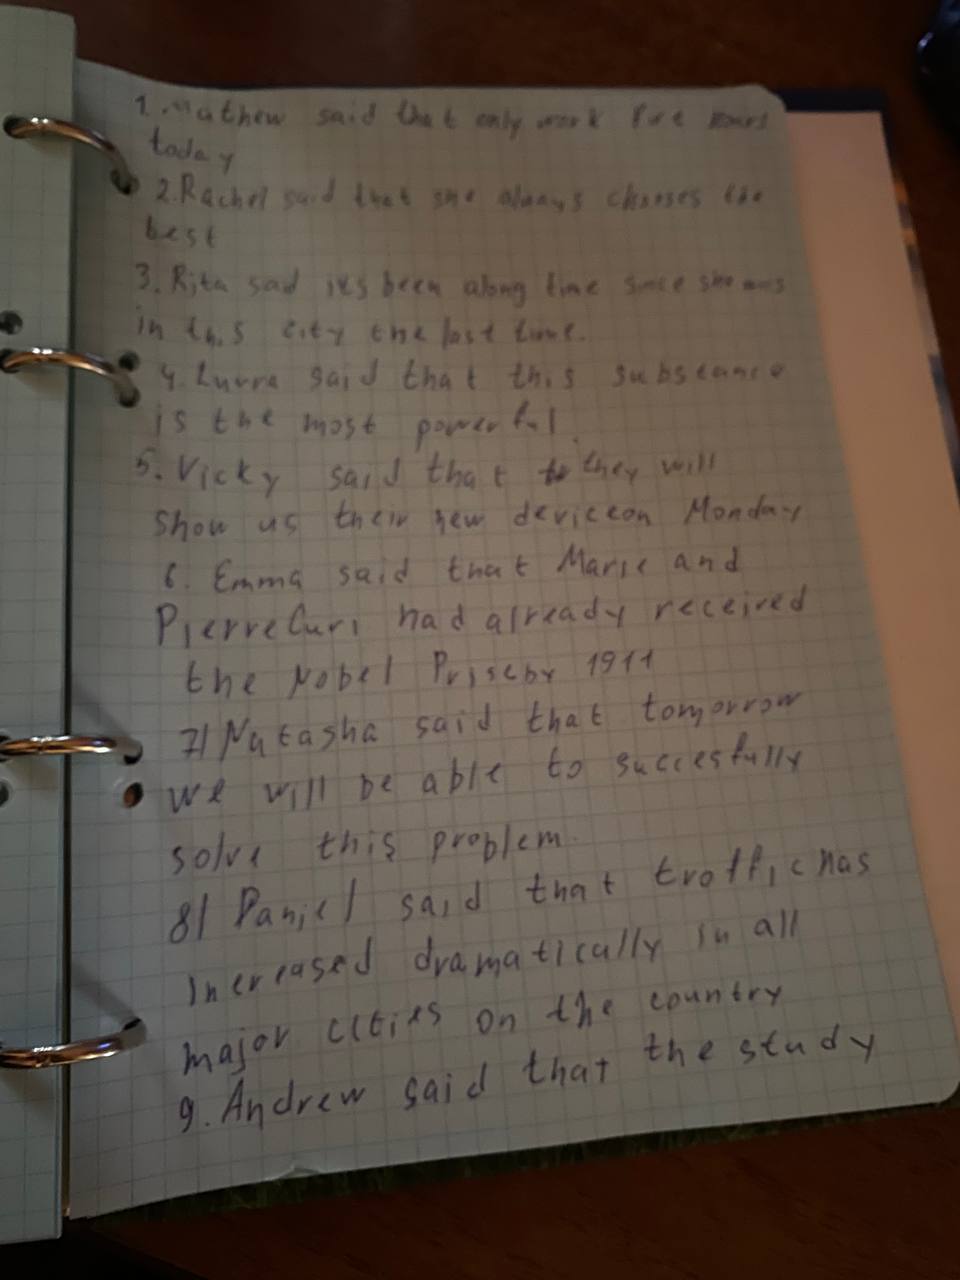 1. Mathew said that only work five hours
today
2. Rachel said that she always chooses the
best
3. Rita sad its been along time since she was
in this city the last time.
4. Lurra said that this substance
is the most powerful.
5. Vicky said that they will
show us their new deviceon Monday
6. Emma said that Marie and
PierreCuri had already received
the Nobel Priseby 1911
7) Natasha said that tomorrow
we will be able to succesfully
solve this problem.
8) Daniel said that traffic has
increased dramatically in all
major cities on the country
9. Andrew said that the study